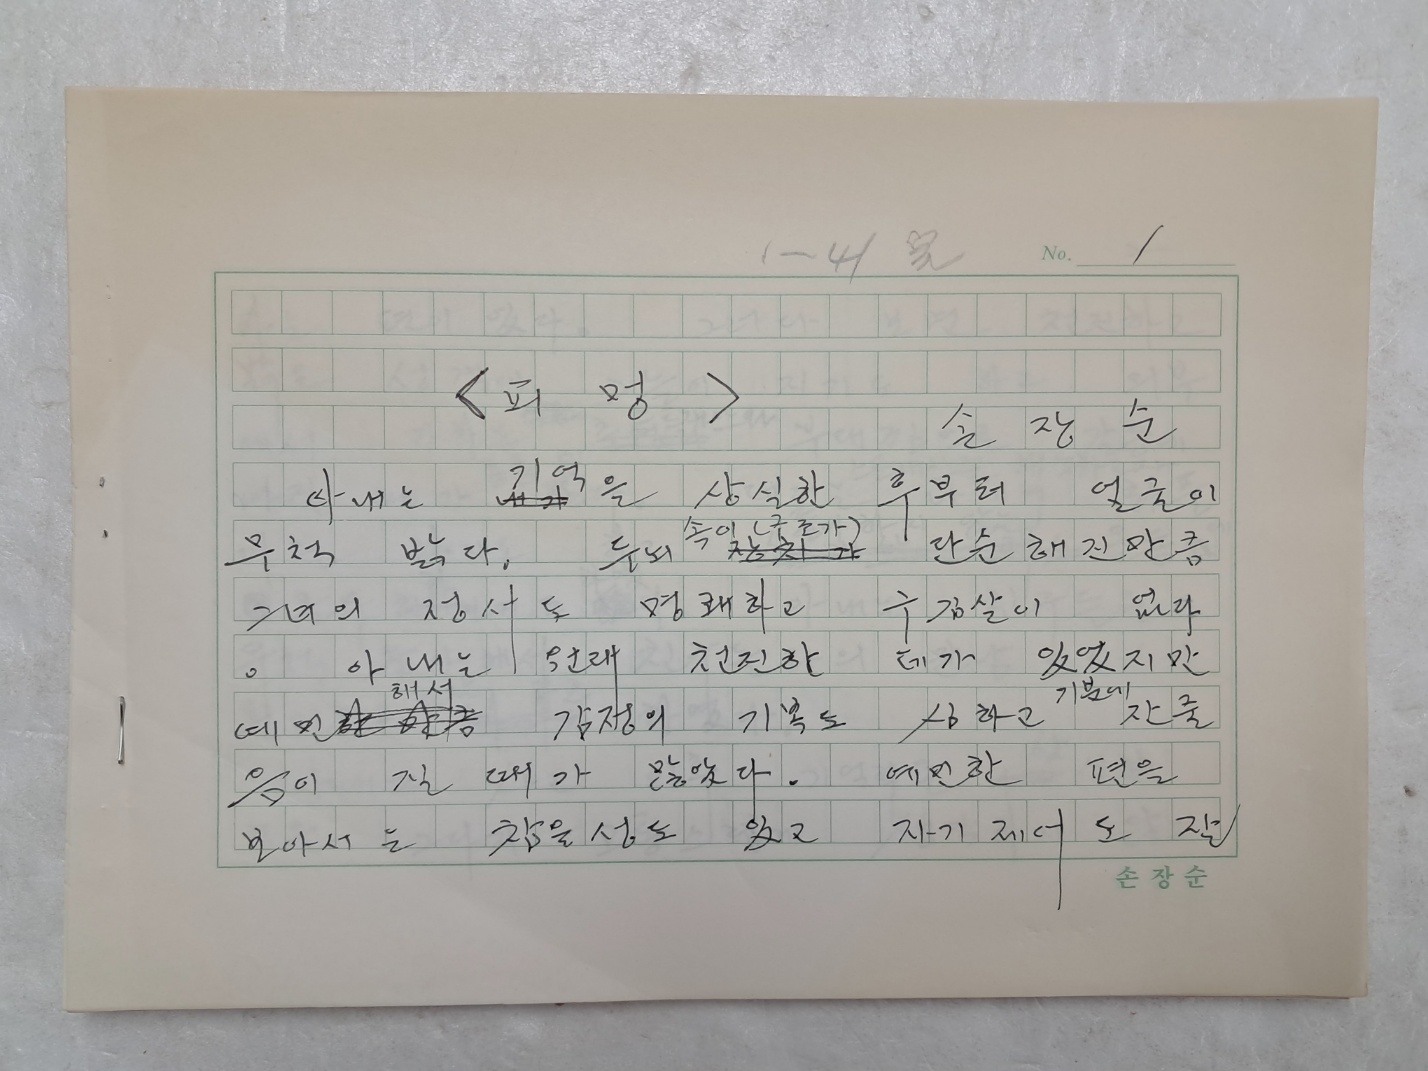 1-41 꽃
No. 1
<피 멍>
손 장 순
아내는 기억을 상실한 후부터 얼굴이
무척 밝다. 두뇌 속이 (구조가) 단순해진만큼
그녀의 정서도 명쾌하고 구김살이 없다
。 아내는 원래 천진한 데가 있었지만
예민해서 감정의 기복도 심하고 기분에 잔주
음이 질 때가 많았다. 예민한 편을
보아서는 참을성도 있고 자기 제어도 잘
손장순